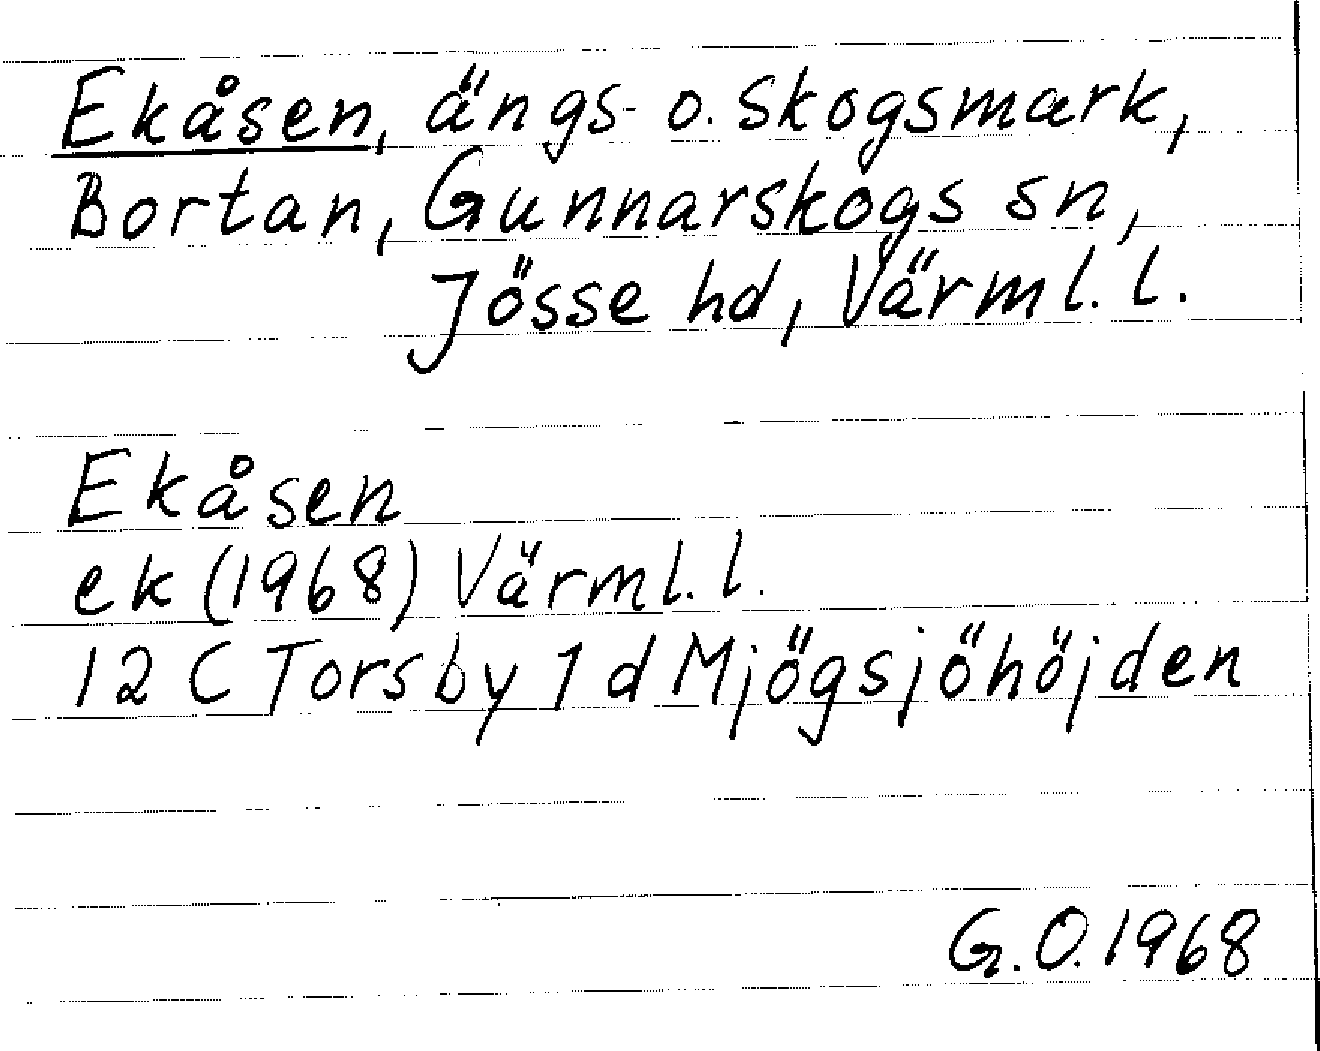 Ekåsen, ängs- o. skogsmark,
Bortan, Gunnarskogs sn,
Jösse hd, Värml. l.
Ekåsen
ek (1968) Värml. l.
12 C Torsby 1 d Mjögsjöhöjden
G. O. 1968